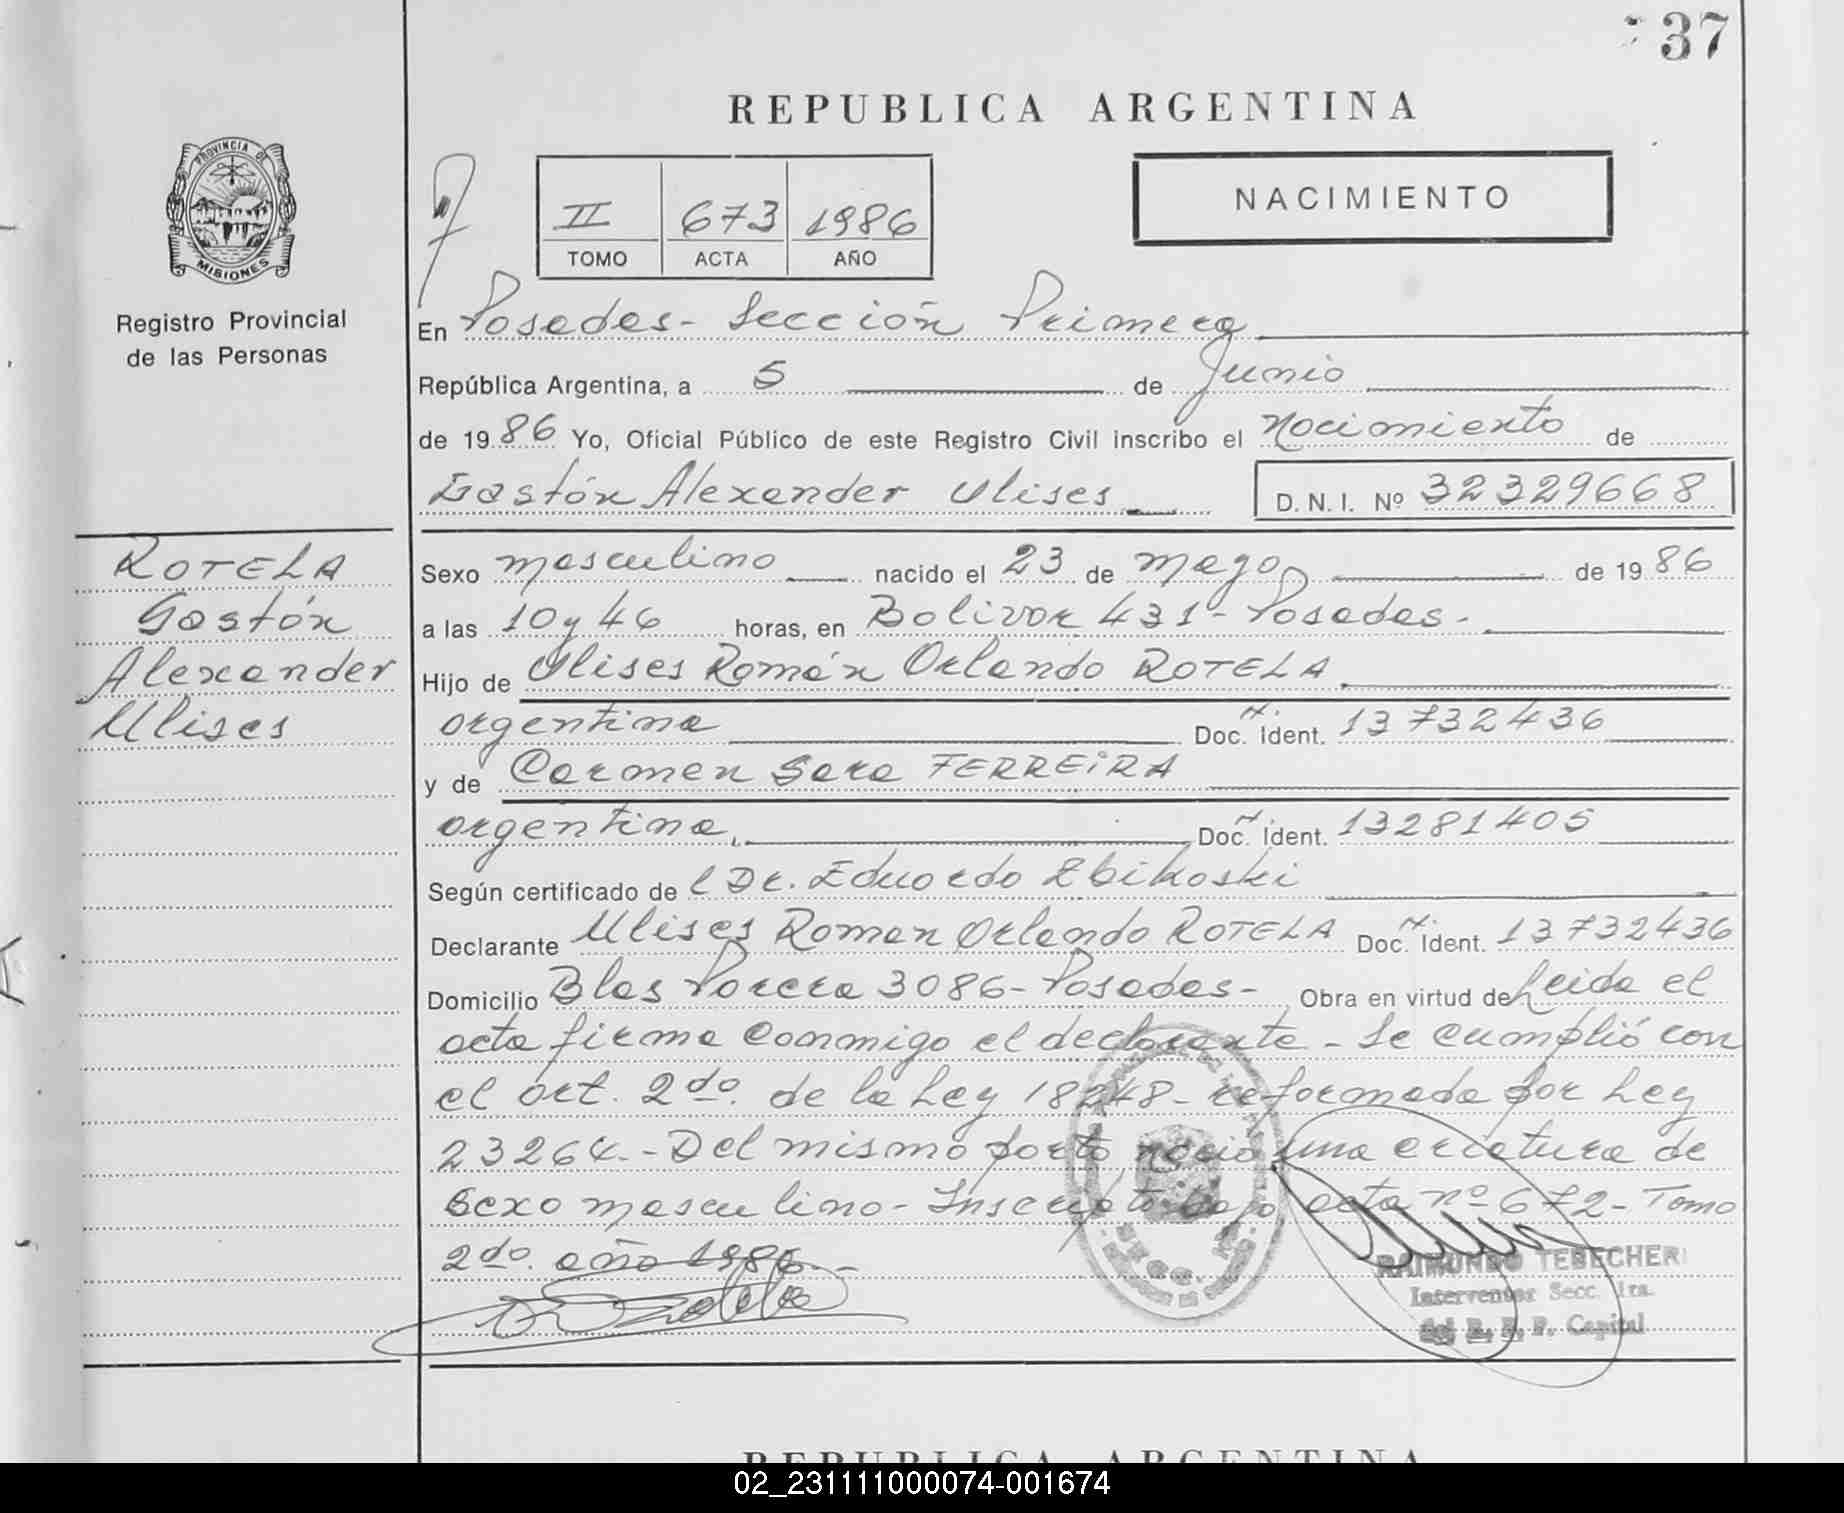 37
REPUBLICA ARGENTINA
PROVINCIA DE
MISIONES
Registro Provincial
de las Personas
II 673 1986
TOMO ACTA AÑO
NACIMIENTO
En Posadas - Sección Primera
República Argentina, a 5 de Junio
de 1986 Yo, Oficial Público de este Registro Civil inscribo el Nacimiento de
Gastón Alexander Ulises D. N. I. Nº 32329668
ROTELA
Gastón
Alexander
Ulises
Sexo masculino nacido el 23 de mayo de 1986
a las 10 y 46 horas, en Bolivar 431 - Posadas -
Hijo de Ulises Román Orlando ROTELA
argentina Doc. Ident. 13732436
y de Carmen Sara FERREIRA
argentina, Doc. Ident. 13281405
Según certificado de l Dr. Eduardo Zbikoski
Declarante Ulises Roman Orlando ROTELA Doc. Ident. 13732436
Domicilio Blas Parera 3086 - Posadas - Obra en virtud de Leida el
acta firma conmigo el declarante - Se cumplió con
el art. 2do. de la Ley 18248 - reformada por Ley
23264 - Del mismo parto nació una criatura de
sexo masculino - Inscripto bajo acta nº 672 - Tomo
2do. año 1986 -
RAIMUNDO TEBECHERI
Interventor Secc. 1ra.
del R. P. P. Capital
REPUBLICA ARGENTINA
02_231111000074-001674